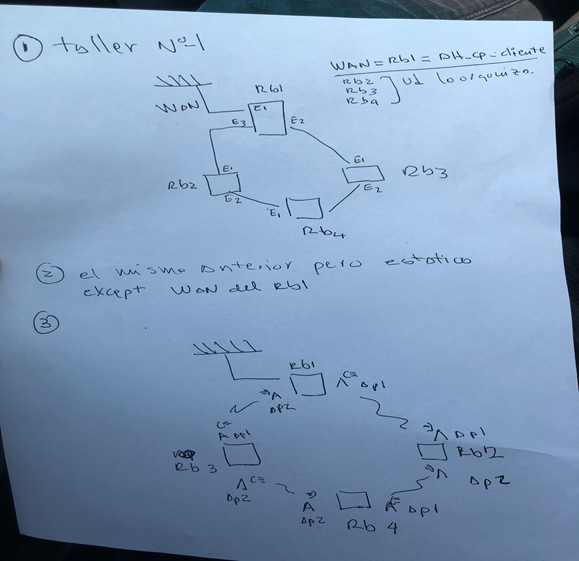 ① taller Nº-1
WAN = Rb1 = DH_cp-cliente
Rb2
Rb3
Rb4
Ud lo organiza
Rb1
WAN
E1
E3
E2
E1
E1
Rb2
Rb3
E2
E2
E1
Rb4
② el mismo anterior pero estatico
except WAN del Rb1
③
Rb1
Ap1
Ap2
Ap1
Ap1
Rb2
Rb3
Ap2
Ap2
Ap2
Ap1
Rb4